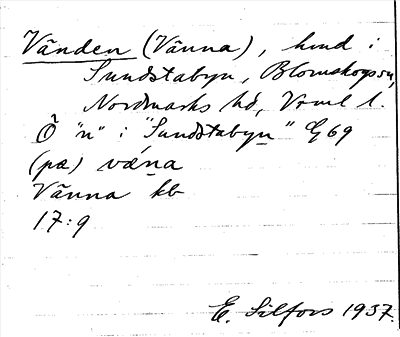 Vänden (Vänna), hmd i
Sundstabyn, Blomskogs sn,
Nordmarks hd, Vrml l.
Ö "n" i "Sundstabyn" G 69
(på) væ̀na
Vänna kb
17:9
E. Silfors 1937.